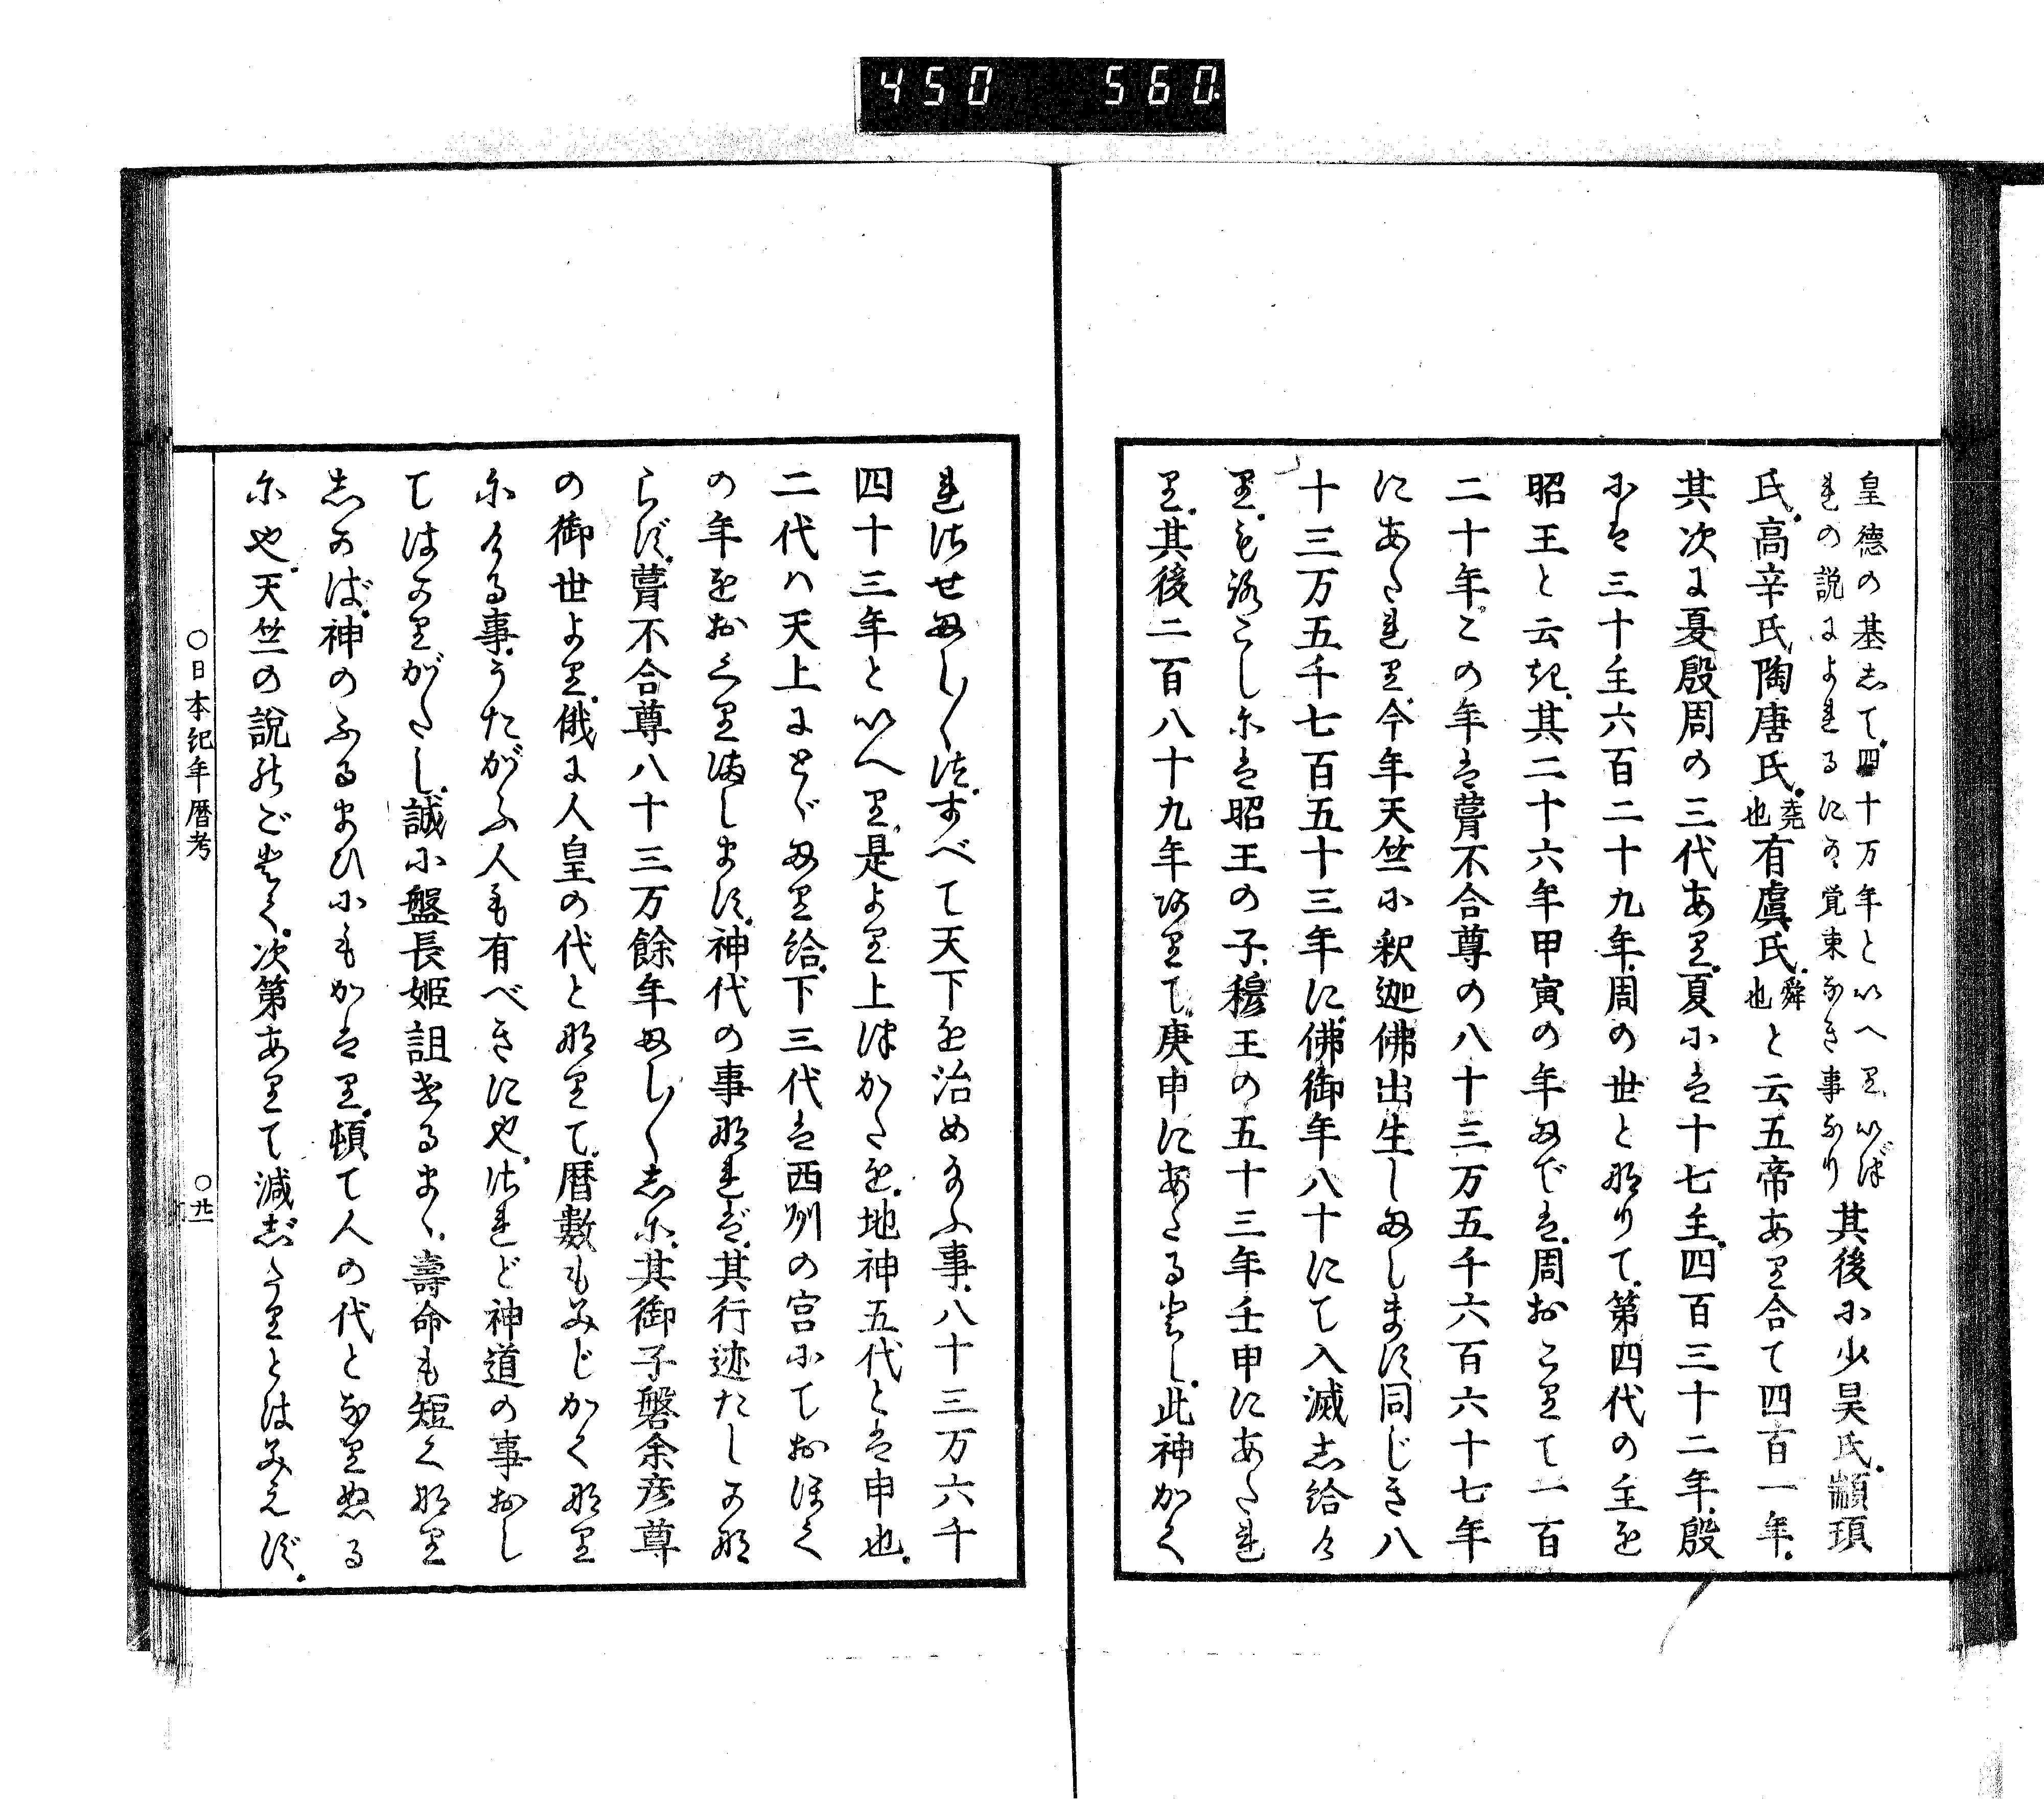 450 560
皇徳の基して。四十万年といへり。いづ
れの説によれるにか覚束なき事なり
其後に少昊氏。顓頊
氏。高辛氏陶唐氏。堯也有虞氏。舜也と云五帝あり合て四百一年。
其次に夏殷周の三代あり。夏には十七主。四百三十二年。殷
には三十主六百二十九年。周の世と那りて。第四代の主を
昭王と云き。其二十六年甲寅の年までは。周おこりて一百
二十年。この年は葺不合尊の八十三万五千六百六十七年
にあたれり。今年天竺に釈迦佛出生しまします同じき八
十三万五千七百五十三年に。佛御年八十にて入滅志給け
り。もろこしには昭王の子。穆王の五十三年壬申にあたれ
り。其後二百八十九年ありて。庚申にあたるとし。此神かく
れさせましく(す。すべて天下を治め給ふ事。八十三万六千
四十三年といへり。是より上つかたを。地神五代とは申也。
二代ハ天上にとゞまり給。下三代は西州の宮にておほく
の年をおくりまします。神代の事なれば。其行迹たしかな
らず。葺不合尊八十三万餘年ましく(志に。其御子磐余彦尊
の御世より。俄に人皇の代となりて。暦数もみじかくなり
にける事。うたがふ人も有べきにや。されど神道の事おし
てはかりがたし。誠に盤長姫詛けるまゝ。壽命も短くなり
しかば。神のふるまひにもかはり。頓て人の代となりぬる
にや。天竺の説のごとく。次第ありて減じたりとはみえず。
○日本紀年暦考
○廿一